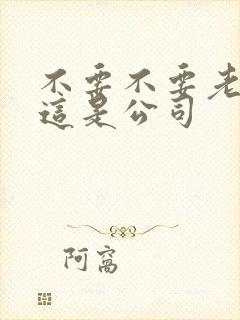 不要不要老
這是公司
阿窩